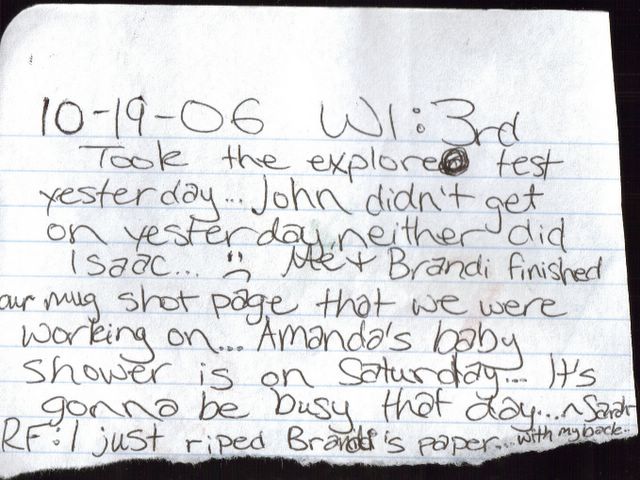 10-19-06 W1:3rd
Took the explore test
yesterday... John didn't get
on yesterday, neither did
Isaac... :( Me + Brandi finished
our mug shot page that we were
working on... Amanda's baby
shower is on Saturday... It's
gonna be busy that day...~Sarah
RF:I just riped Brandi's paper...with my back..